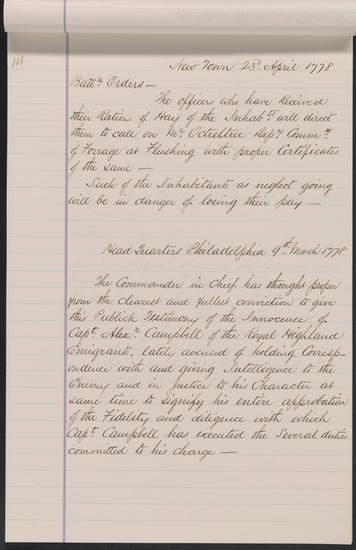 111
New Town 23d April 1778
Battn Orders—
The officers who have Received
their Ration of Hay of the Inhabts will direct
them to call on Mr Ochteltree Depy Commy
of Forrage at Flushing with proper Certificates
of the same—
Such of the Inhabitants as neglect going
will be in danger of loeing their pay—
Head Quarters Philadelphia 9th March 1778
The Commander in Chief has thought proper
from the clearest and fullest conviction to give
this Publick Testimony of the Innocence of
Capt. Alexr Campbell of the Royal Highland
Emigrants, lately accused of holding Corresp-
ondence with and giving Intelligence to the
Enemy and in Justice to his Character at
same time to Signify his entire approbation
of the Fidelity and diligence with which
Capt. Campbell has executed the Several duties
committed to his charge—